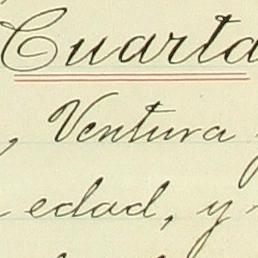 Cuarta
, Ventura
edad, y